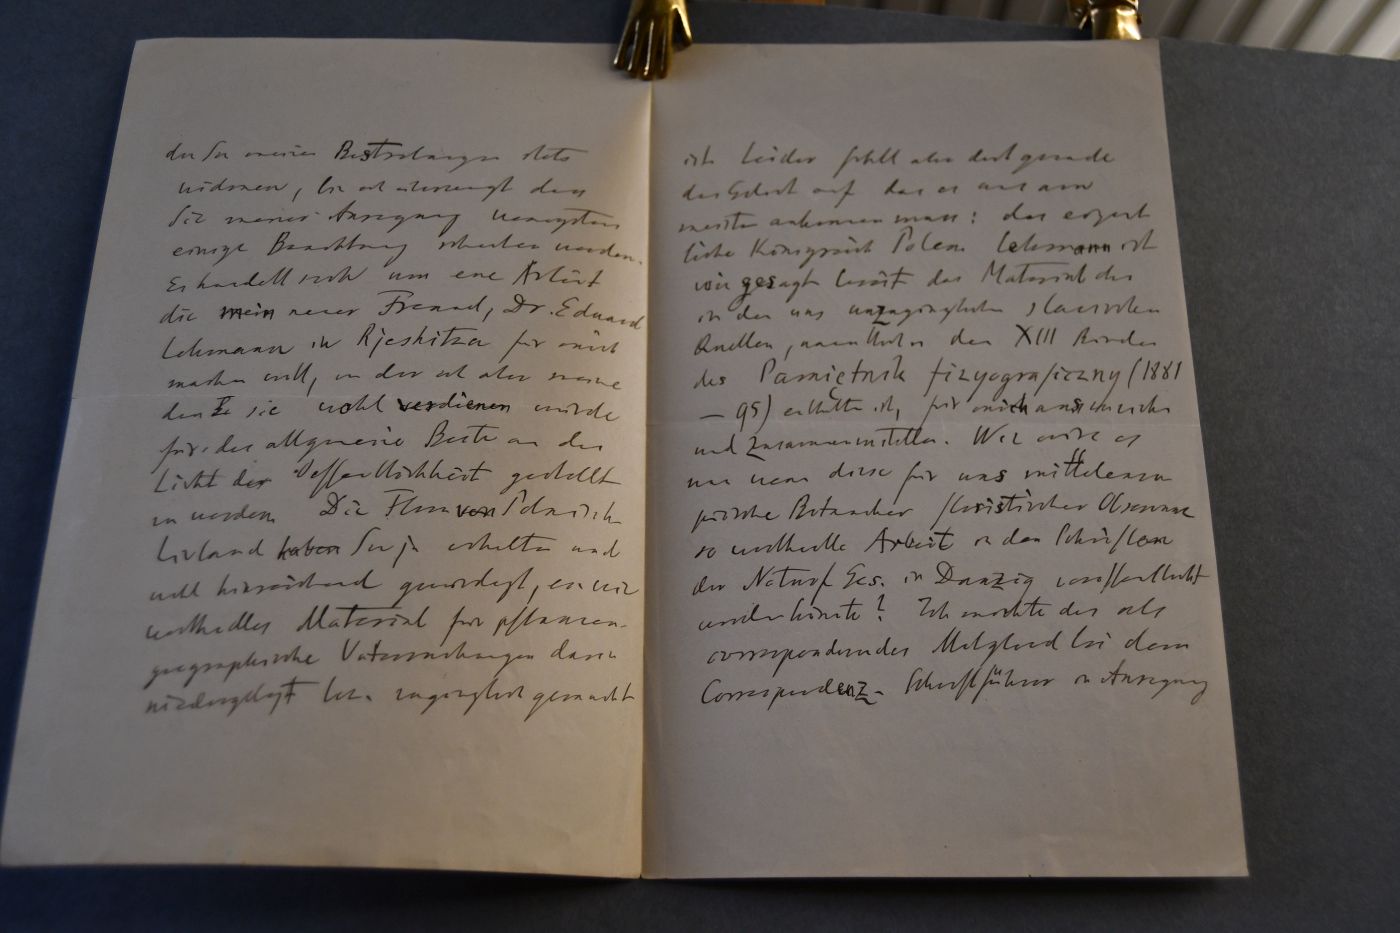 der Sie meinen Bestrebungen stets
widmen, bin ich überzeugt dass
Sie meiner Anregung wenigstens
einige Beachtung schenken werden.
Es handelt sich um eine Arbeit
die mein neuer Freund, Dr. Eduard
Lehmann in Rjeshitza für mich
machen will, in der ich aber meine
denke sie wohl verdienen würde
für das allgemeine Beste an das
Licht der Oeffentlichkeit gestellt
zu werden. Die Flora von Polnisch
Livland haben Sie ja erhalten und
wohl hinreichend gewürdigt, ein wie
werthvolles Material für pflanzen-
geographische Untersuchungen darin
niedergelegt bez. zugänglich gemacht
ist. Leider fehlt aber dort gerade
das Gebiet auf das es uns am
meisten ankommen muss: das eigent
liche Königreich Polen. Lehmann ist
wie gesagt bereit das Material das
in den uns unzugänglichen slavischen
Quellen, namentlich in den XIII Bänden
des Pamiętnik fizyograficzny (1881
— 95) enthalten ist, für mich
und zusammenstellen. Wie wäre es
nun wenn diese für uns mitteleuro
päische Botaniker floristischer Observanz
so werthvolle Arbeit in den Schriften
der Naturf. Ges. in Danzig veröffentlicht
werden könnte? Ich möchte das als
correspondirendes Mitglied bei dem
Correspondenz-Schriftführer in Anregung